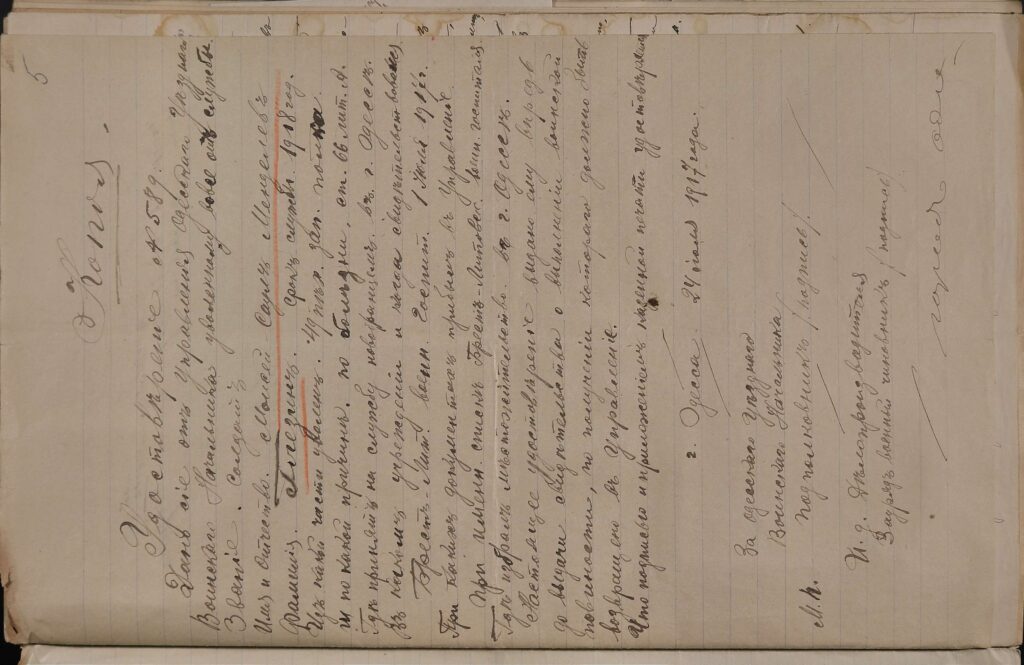 5
Копія.
Удостовѣреніе № 589.
Дано сіе отъ управленія Одесскаго Уѣзднаго
Воинскаго Начальника уволенному вовсе отъ службы
Званіе. Солдатъ
Имя и Отчество. Мошка Саръ Менделевъ
Фамилія. срокъ службы. 1918 год.
Изъ какой части уволенъ. 49 пѣх. зап. полка.
и по какой причинѣ. по болѣзни. ст. 66 лит. А.
Гдѣ принятъ на службу новобранцемъ. въ г. Одессѣ.
Въ какомъ учрежденіи и когда свидѣтельствованъ
Брестъ-Лит. воен. госпит. 1 Мая 191 г.
При какихъ документахъ прибылъ въ Управленіе
При именн. спискѣ Брестъ-Литовск. воен. госпиталя
Гдѣ избралъ мѣстожительство. въ г. Одессѣ.
Настоящее удостовѣреніе выдано ему впредь
до выдачи свидѣтельства о выполненіи воинской
повинности, по полученіи котораго должно быть
возвращено въ Управленіе.
Что подписью и приложеніемъ казенной печати удостовѣряю
г. Одесса. 24 іюля 1917 года.
За Одесскаго Уѣзднаго
Воинскаго Начальника
Подполковникъ /подпись/
М. П.
И. д. Дѣлопроизводителя
Зауряд военный чиновникъ /подпись/